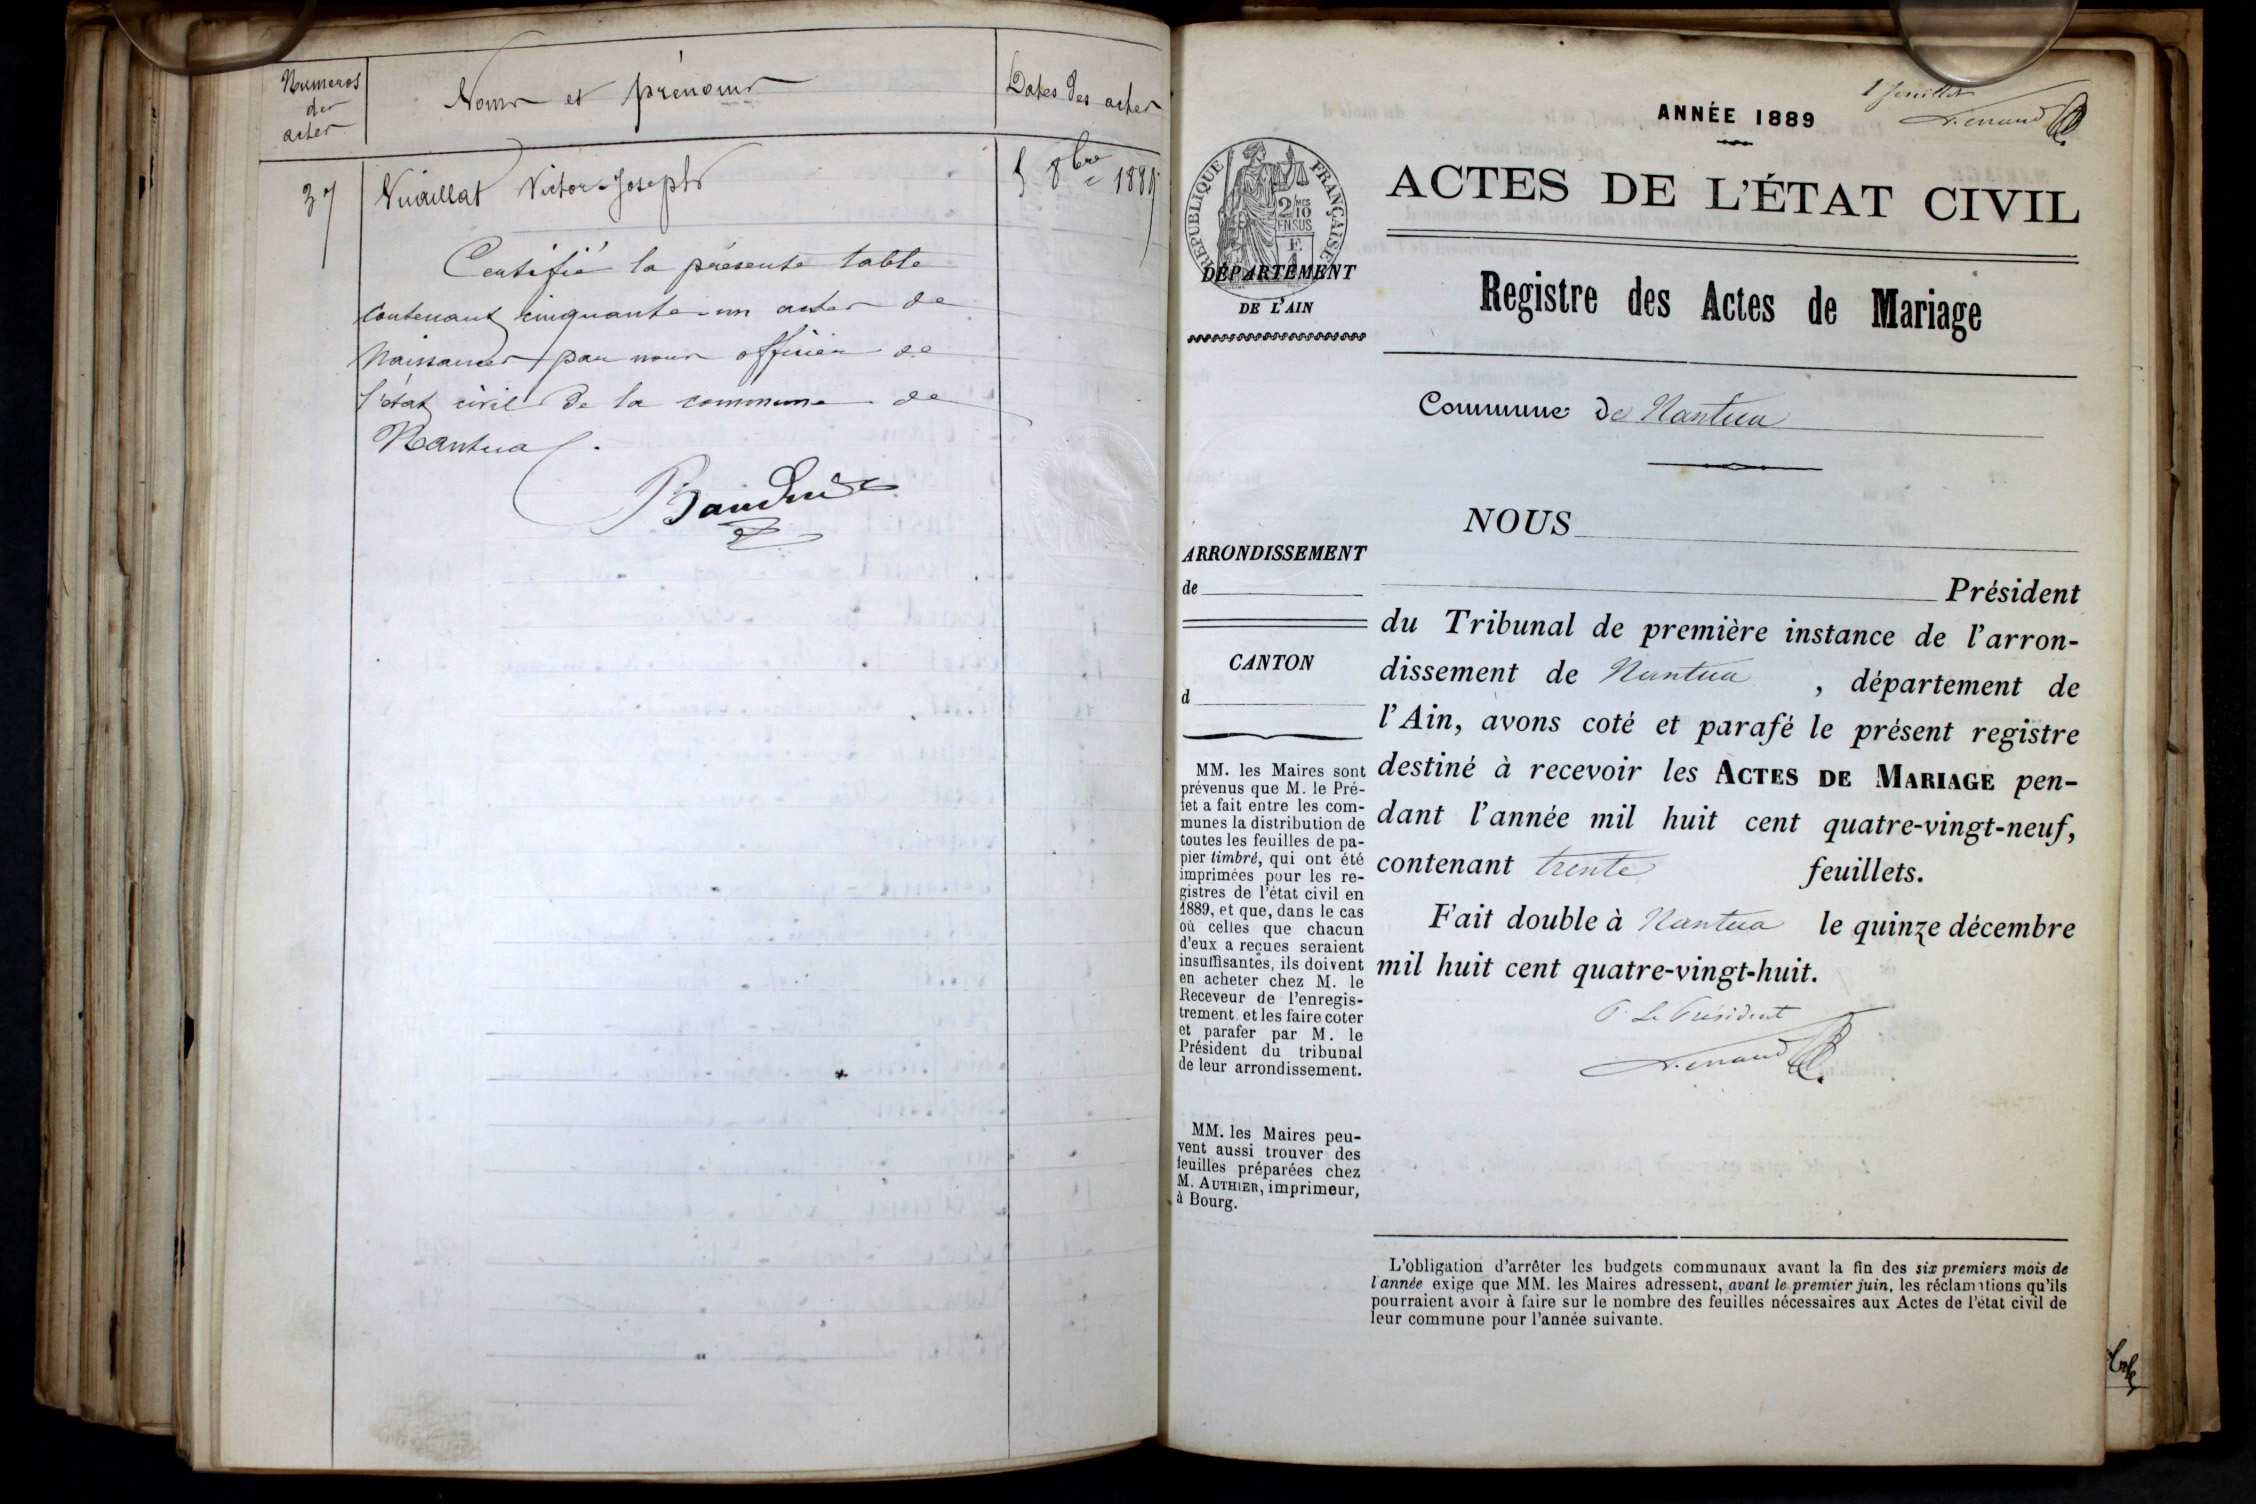 Numéros
des
actes
Noms et prénoms
Dates des actes
37
Vuaillat Victor-Joseph
5 8bre 1889
Certifié la présente table
contenant cinquante-un actes de
Naissances par nous officier de
l'état civil de la commune de
Nantua.
1 feuillet
ANNÉE 1889
RÉPUBLIQUE FRANÇAISE
2/10
EN SUS
ACTES DE L'ÉTAT CIVIL
DÉPARTEMENT
DE L'AIN
Registre des Actes de Mariage
Commune de Nantua
NOUS
Président
du Tribunal de première instance de l'arron-
dissement de Nantua, département de
l'Ain, avons coté et parafé le présent registre
destiné à recevoir les ACTES DE MARIAGE pen-
dant l'année mil huit cent quatre-vingt-neuf,
contenant trente feuillets.
Fait double à Nantua le quinze décembre
mil huit cent quatre-vingt-huit.
P. Le Président
ARRONDISSEMENT
de
CANTON
d
MM. les Maires sont
prévenus que M. le Pré-
fet a fait entre les com-
munes la distribution de
toutes les feuilles de pa-
pier timbré, qui ont été
imprimées pour les re-
gistres de l'état civil en
1889, et que, dans le cas
où celles que chacun
d'eux a reçues seraient
insuffisantes, ils doivent
en acheter chez M. le
Receveur de l'enregis-
trement et les faire coter
et parafer par M. le
Président du tribunal
de leur arrondissement.
MM. les Maires peu-
vent aussi trouver des
feuilles préparées chez
M. AUTHIER, imprimeur,
à Bourg.
L'obligation d'arrêter les budgets communaux avant la fin des six premiers mois de
l'année exige que MM. les Maires adressent, avant le premier juin, les réclamations qu'ils
pourraient avoir à faire sur le nombre des feuilles nécessaires aux Actes de l'état civil de
leur commune pour l'année suivante.